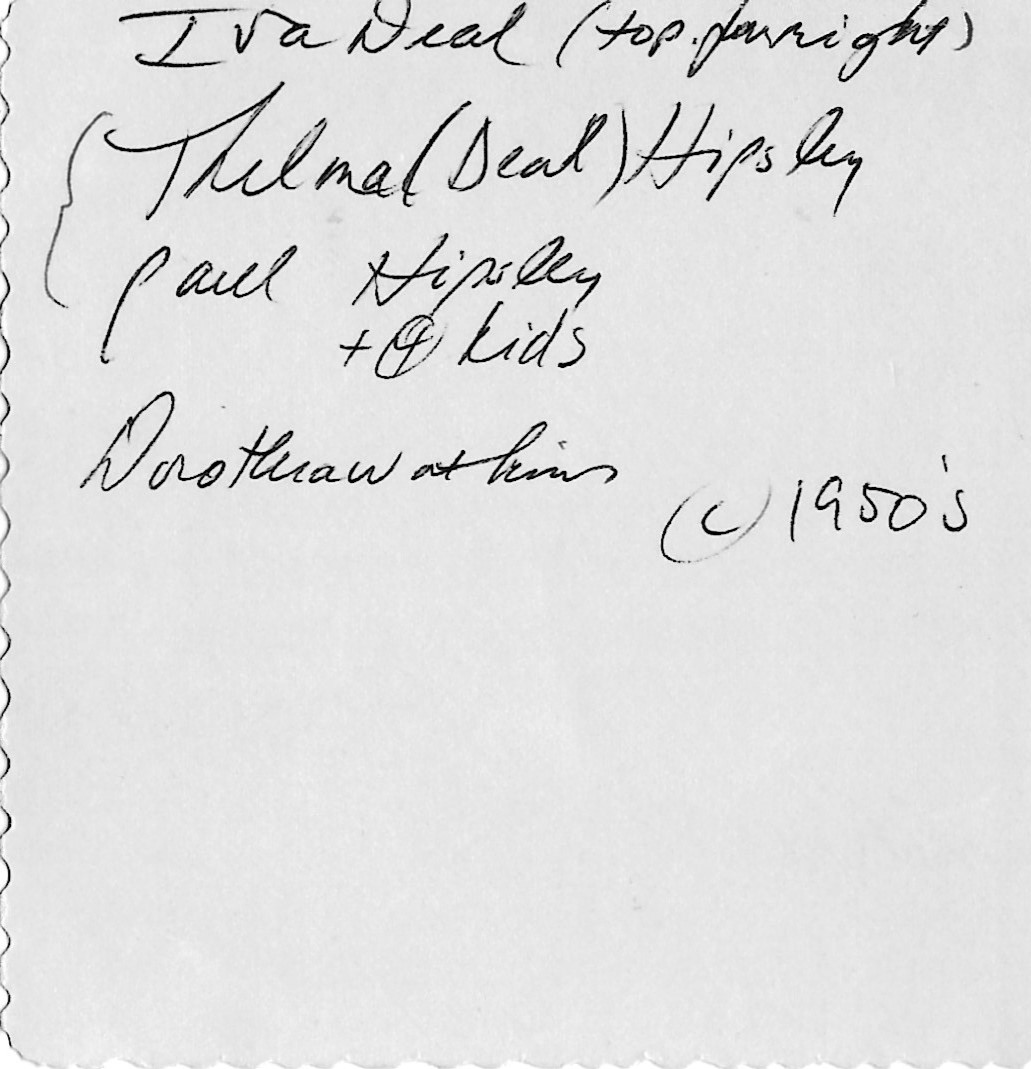 Iva Deal (top. far right)
Thelma (Deal) Hipsley
Paul Hipsley
+ 4 kids
Dorothea Watkins
(c) 1950's